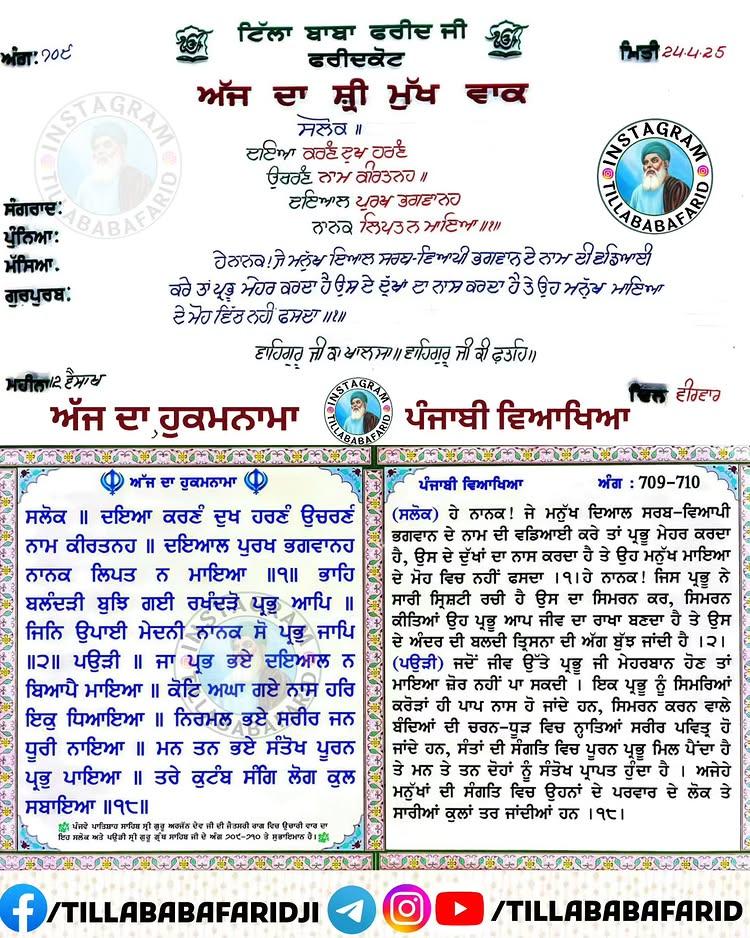 ਟਿੱਲਾ ਬਾਬਾ ਫਰੀਦ ਜੀ
ਫਰੀਦਕੋਟ
ਅੰਗ: ੭੦੯
ਮਿਤੀ 24.4.25
ਅੱਜ ਦਾ ਸ਼੍ਰੀ ਮੁੱਖ ਵਾਕ
INSTAGRAM
TILLABABAFARID
ਸਲੋਕ ॥
ਦਇਆ ਕਰਣੰ ਦੁਖ ਹਰਣੰ
ਉਚਰਣੰ ਨਾਮ ਕੀਰਤਨਹ ॥
ਦਇਆਲ ਪੁਰਖ ਭਗਵਾਨਹ
ਨਾਨਕ ਲਿਪਤ ਨ ਮਾਇਆ ॥੧॥
INSTAGRAM
TILLABABAFARID
ਸੰਗਰਾਦ:
ਪੁੰਨਿਆ:
ਮੱਸਿਆ.
ਗੁਰਪੁਰਬ:
ਹੇ ਨਾਨਕ! ਜੇ ਮਨੁੱਖ ਦਿਆਲ ਸਰਬ-ਵਿਆਪੀ ਭਗਵਾਨ ਦੇ ਨਾਮ ਦੀ ਵਡਿਆਈ
ਕਰੇ ਤਾਂ ਪ੍ਰਭੂ ਮੇਹਰ ਕਰਦਾ ਹੈ ਉਸ ਦੇ ਦੁੱਖਾਂ ਦਾ ਨਾਸ ਕਰਦਾ ਹੈ ਤੇ ਉਹ ਮਨੁੱਖ ਮਾਇਆ
ਦੇ ਮੋਹ ਵਿੱਚ ਨਹੀ ਫਸਦਾ ॥੧॥
ਵਾਹਿਗੁਰੂ ਜੀ ਕਾ ਖਾਲਸਾ॥ ਵਾਹਿਗੁਰੂ ਜੀ ਕੀ ਫਤਹਿ॥
ਮਹੀਨਾ ੧੨ ਵੈਸਾਖ
ਦਿਨ ਵੀਰਵਾਰ
ਅੱਜ ਦਾ ਹੁਕਮਨਾਮਾ
INSTAGRAM
TILLABABAFARID
ਪੰਜਾਬੀ ਵਿਆਖਿਆ
ਅੱਜ ਦਾ ਹੁਕਮਨਾਮਾ
ਸਲੋਕ ॥ ਦਇਆ ਕਰਣੰ ਦੁਖ ਹਰਣੰ ਉਚਰਣੰ
ਨਾਮ ਕੀਰਤਨਹ ॥ ਦਇਆਲ ਪੁਰਖ ਭਗਵਾਨਹ
ਨਾਨਕ ਲਿਪਤ ਨ ਮਾਇਆ ॥੧॥ ਭਾਹਿ
ਬਲੰਦੜੀ ਬੁਝਿ ਗਈ ਰਖੰਦੜੋ ਪ੍ਰਭੁ ਆਪਿ ॥
ਜਿਨਿ ਉਪਾਈ ਮੇਦਨੀ ਨਾਨਕ ਸੋ ਪ੍ਰਭੁ ਜਾਪਿ
॥੨॥ ਪਉੜੀ ॥ ਜਾ ਪ੍ਰਭ ਭਏ ਦਇਆਲ ਨ
ਬਿਆਪੈ ਮਾਇਆ ॥ ਕੋਟਿ ਅਘਾ ਗਏ ਨਾਸ ਹਰਿ
ਇਕੁ ਧਿਆਇਆ ॥ ਨਿਰਮਲ ਭਏ ਸਰੀਰ ਜਨ
ਧੂਰੀ ਨਾਇਆ ॥ ਮਨ ਤਨ ਭਏ ਸੰਤੋਖ ਪੂਰਨ
ਪ੍ਰਭੁ ਪਾਇਆ ॥ ਤਰੇ ਕੁਟੰਬ ਸੰਗਿ ਲੋਗ ਕੁਲ
ਸਬਾਇਆ ॥੧੮॥
ਪੰਜਵੇ ਪਾਤਿਸ਼ਾਹ ਸਾਹਿਬ ਸ਼੍ਰੀ ਗੁਰੂ ਅਰਜੁੱਨ ਦੇਵ ਜੀ ਦੀ ਜੈਤਸਰੀ ਰਾਗ ਵਿਚ ਉਚਾਰੀ ਵਾਰ ਦਾ
ਇਹ ਸਲੋਕ ਅਤੇ ਪਉੜੀ ਸ਼੍ਰੀ ਗੁਰੂ ਗ੍ਰੰਥ ਸਾਹਿਬ ਜੀ ਦੇ ਅੰਗ ੭੦੯-੭੧੦ ਤੇ ਸੁਭਾਇਮਾਨ ਹੈ।
ਪੰਜਾਬੀ ਵਿਆਖਿਆ ਅੰਗ : 709-710
(ਸਲੋਕ) ਹੇ ਨਾਨਕ! ਜੇ ਮਨੁੱਖ ਦਿਆਲ ਸਰਬ-ਵਿਆਪੀ
ਭਗਵਾਨ ਦੇ ਨਾਮ ਦੀ ਵਡਿਆਈ ਕਰੇ ਤਾਂ ਪ੍ਰਭੂ ਮੇਹਰ ਕਰਦਾ
ਹੈ, ਉਸ ਦੇ ਦੁੱਖਾਂ ਦਾ ਨਾਸ ਕਰਦਾ ਹੈ ਤੇ ਉਹ ਮਨੁੱਖ ਮਾਇਆ
ਦੇ ਮੋਹ ਵਿਚ ਨਹੀਂ ਫਸਦਾ ।੧।ਹੇ ਨਾਨਕ! ਜਿਸ ਪ੍ਰਭੂ ਨੇ
ਸਾਰੀ ਸ੍ਰਿਸ਼ਟੀ ਰਚੀ ਹੈ ਉਸ ਦਾ ਸਿਮਰਨ ਕਰ, ਸਿਮਰਨ
ਕੀਤਿਆਂ ਉਹ ਪ੍ਰਭੂ ਆਪ ਜੀਵ ਦਾ ਰਾਖਾ ਬਣਦਾ ਹੈ ਤੇ ਉਸ
ਦੇ ਅੰਦਰ ਦੀ ਬਲਦੀ ਤ੍ਰਿਸਨਾ ਦੀ ਅੱਗ ਬੁੱਝ ਜਾਂਦੀ ਹੈ ।੨।
(ਪਉੜੀ) ਜਦੋਂ ਜੀਵ ਉੱਤੇ ਪ੍ਰਭੂ ਜੀ ਮੇਹਰਬਾਨ ਹੋਣ ਤਾਂ
ਮਾਇਆ ਜ਼ੋਰ ਨਹੀਂ ਪਾ ਸਕਦੀ । ਇਕ ਪ੍ਰਭੂ ਨੂੰ ਸਿਮਰਿਆਂ
ਕਰੋੜਾਂ ਹੀ ਪਾਪ ਨਾਸ ਹੋ ਜਾਂਦੇ ਹਨ, ਸਿਮਰਨ ਕਰਨ ਵਾਲੇ
ਬੰਦਿਆਂ ਦੀ ਚਰਨ-ਧੂੜ ਵਿਚ ਨ੍ਹਾਤਿਆਂ ਸਰੀਰ ਪਵਿਤ੍ਰ ਹੋ
ਜਾਂਦੇ ਹਨ, ਸੰਤਾਂ ਦੀ ਸੰਗਤਿ ਵਿਚ ਪੂਰਨ ਪ੍ਰਭੂ ਮਿਲ ਪੈਂਦਾ ਹੈ
ਤੇ ਮਨ ਤੇ ਤਨ ਦੋਹਾਂ ਨੂੰ ਸੰਤੋਖ ਪ੍ਰਾਪਤ ਹੁੰਦਾ ਹੈ । ਅਜੇਹੇ
ਮਨੁੱਖਾਂ ਦੀ ਸੰਗਤਿ ਵਿਚ ਉਹਨਾਂ ਦੇ ਪਰਵਾਰ ਦੇ ਲੋਕ ਤੇ
ਸਾਰੀਆਂ ਕੁਲਾਂ ਤਰ ਜਾਂਦੀਆਂ ਹਨ ।੧੮।
INSTAGRAM
TILLABABAFARID
/TILLABABAFARIDJI
/TILLABABAFARID